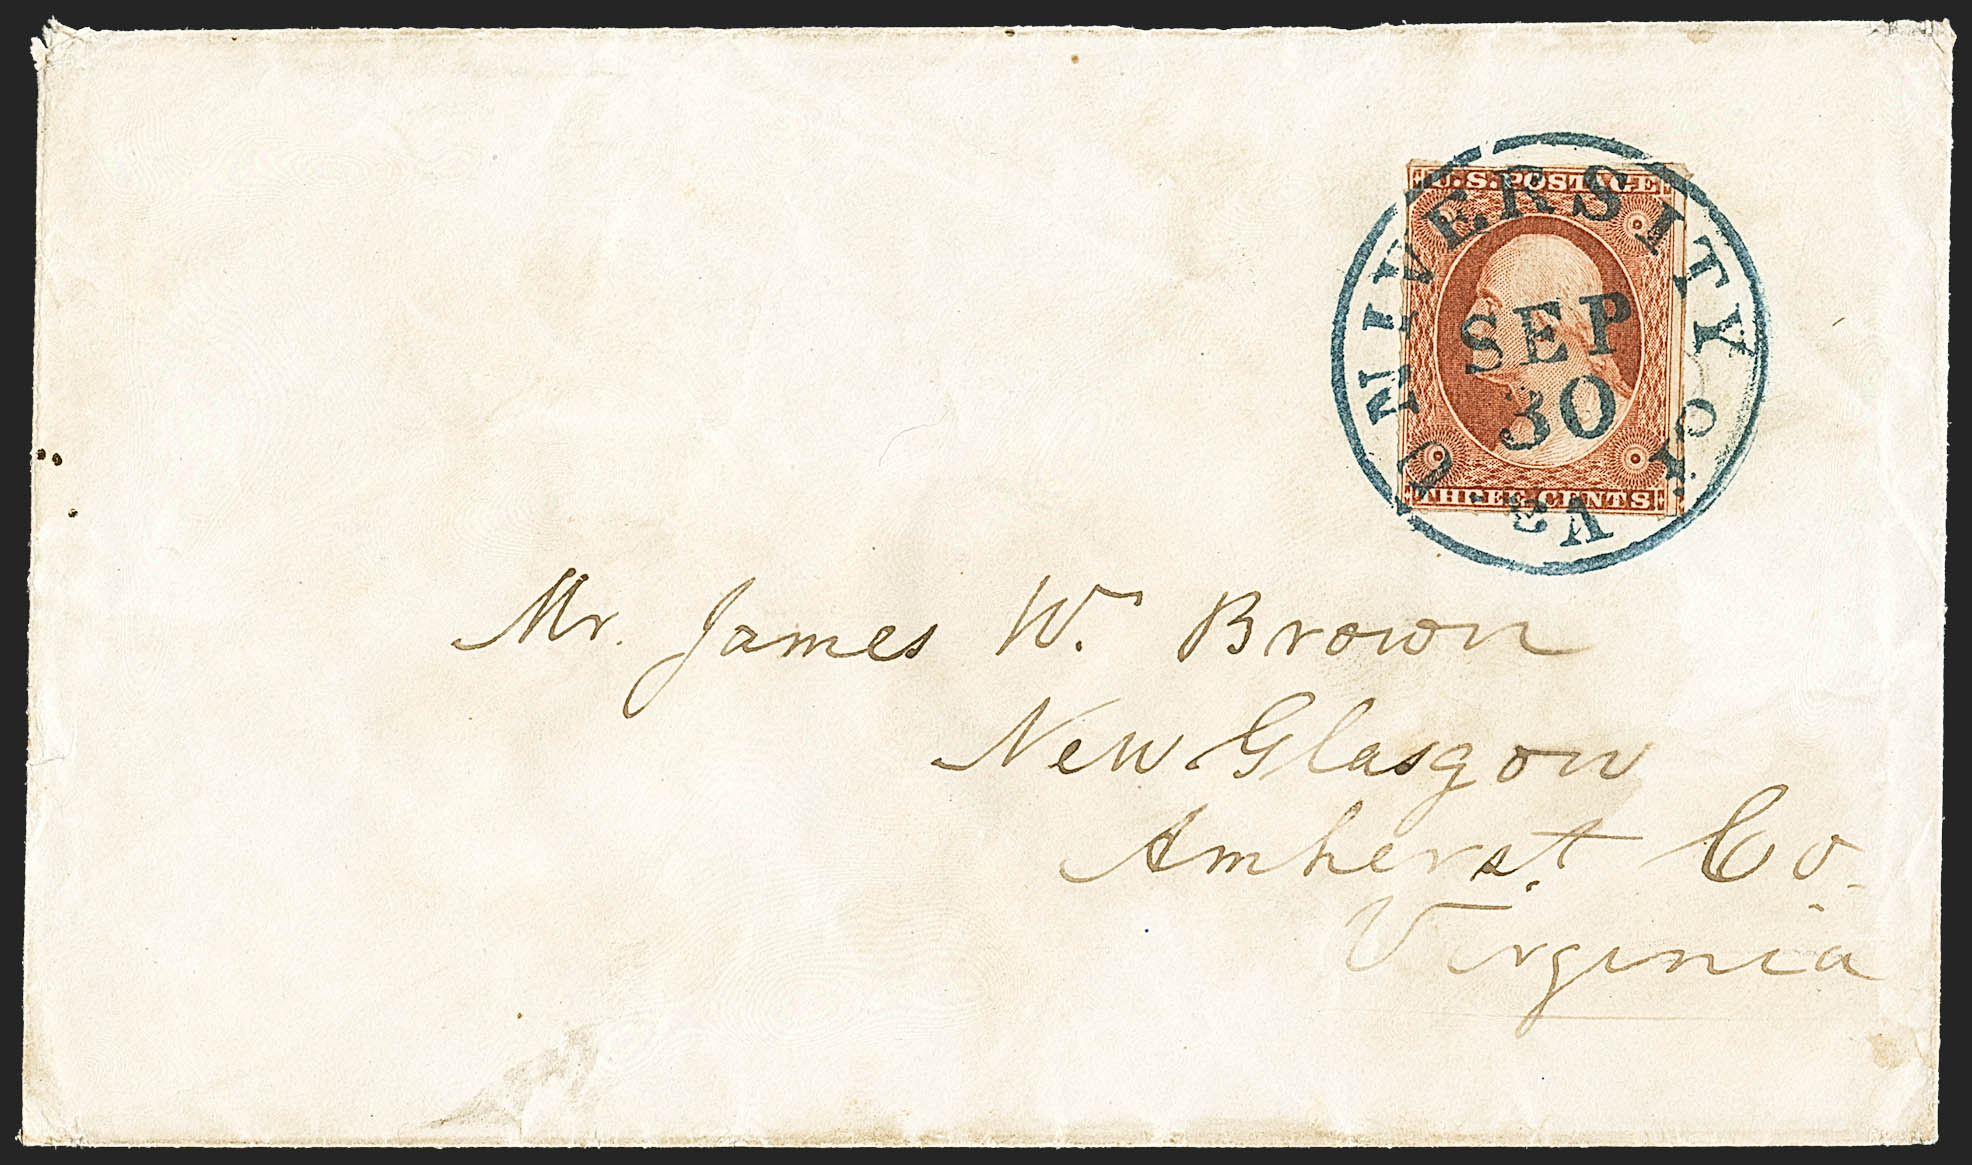 UNIVERSITY OF Va.
SEP
30
U.S. POSTAGE
THREE CENTS
Mr. James W. Brown
New Glasgow
Amherst. Co.
Virginia